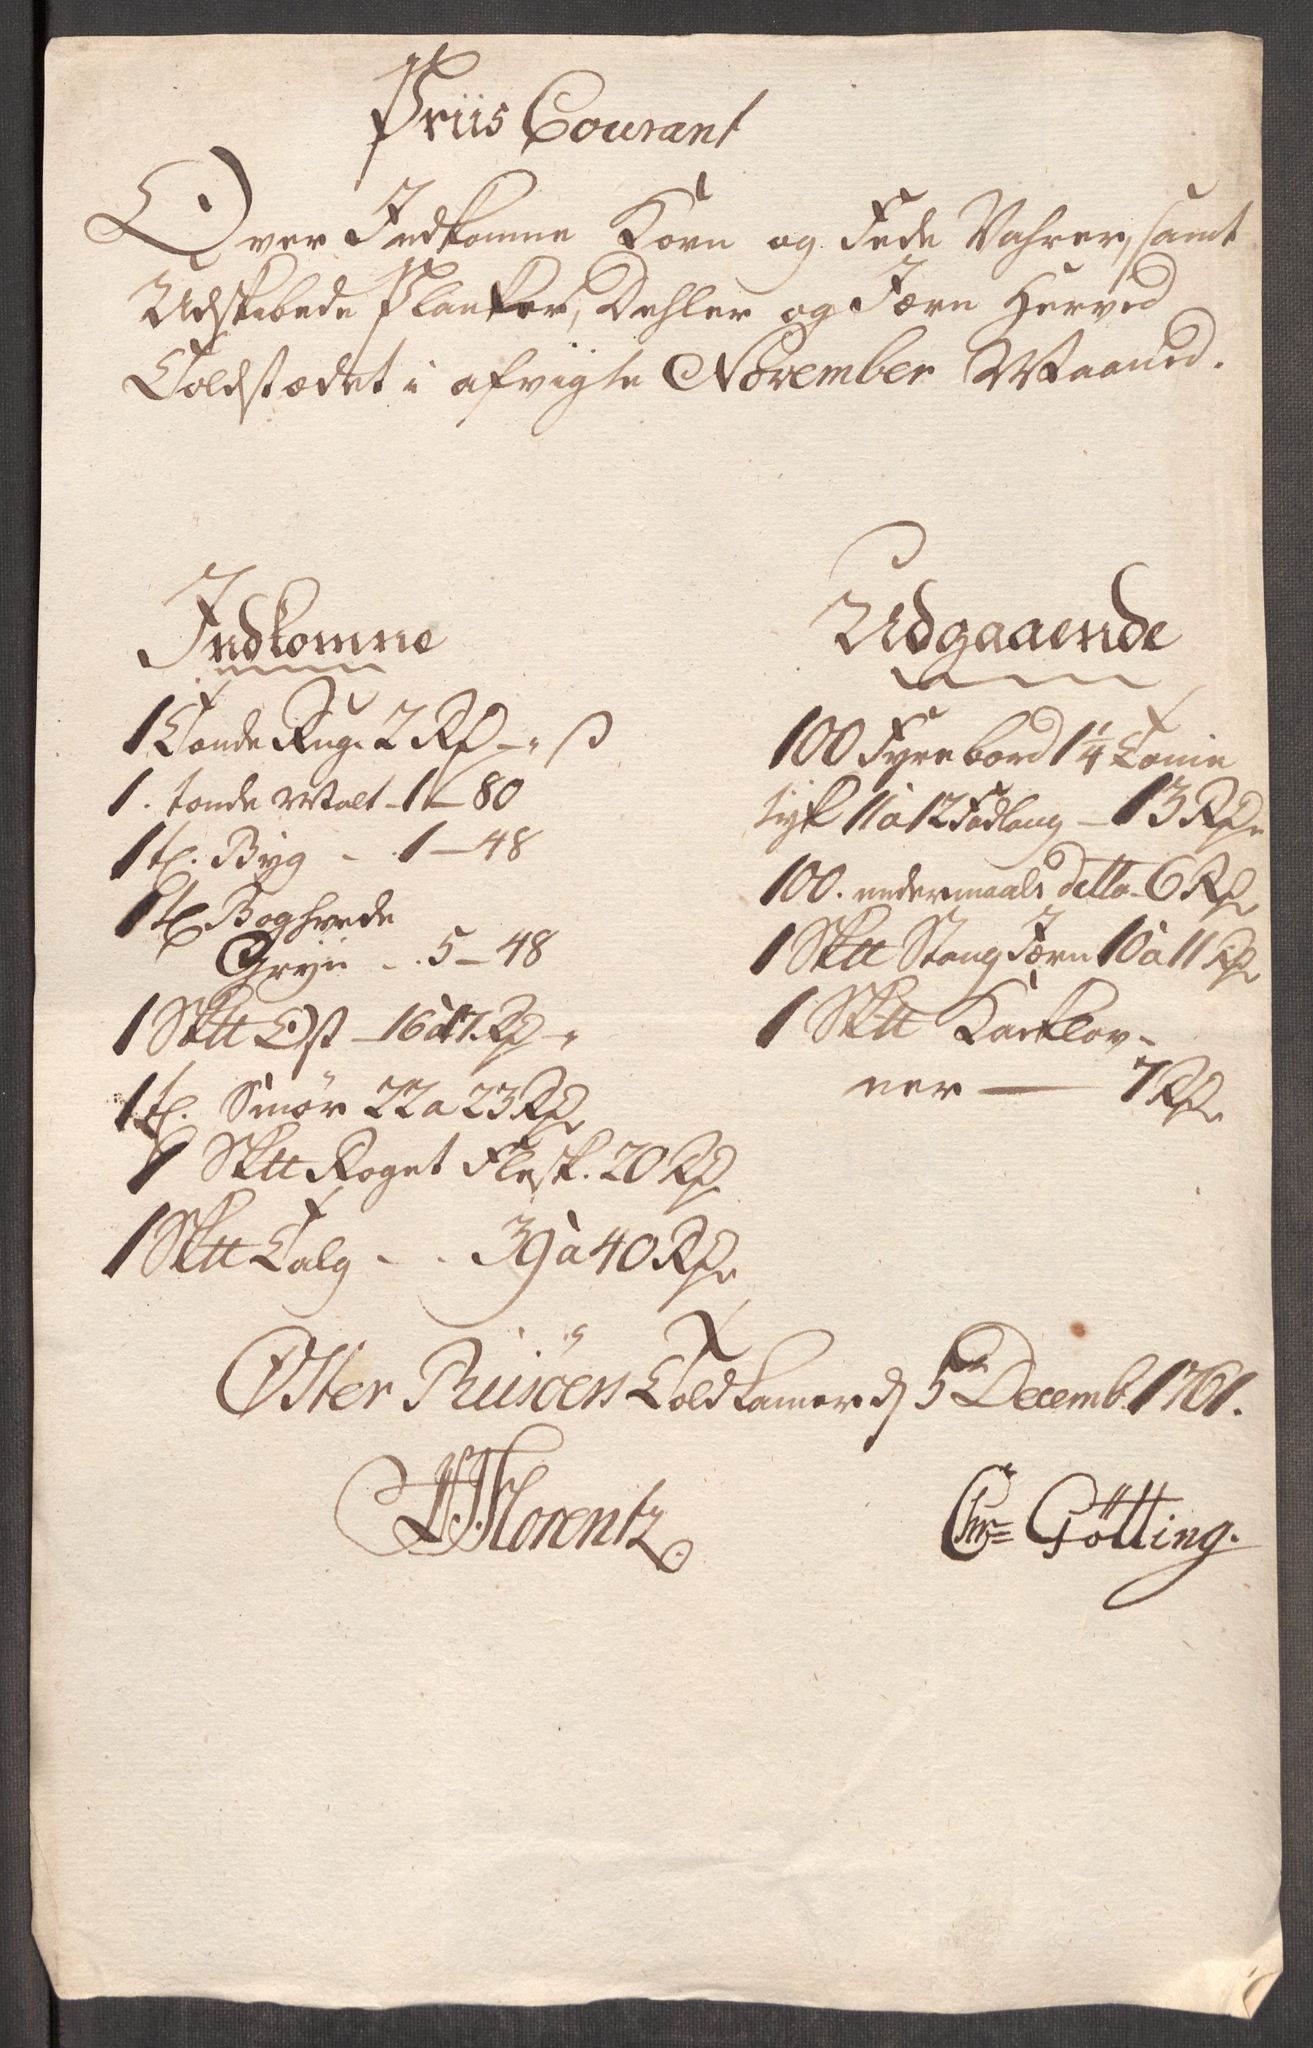 Priis Courant
Over Indkomne Korn og Fede Vahrer, samt
Udskibede Planker, Dehler og Jærn Herved
Toldstædet i afvigte November Maaned.
Indkomne
1 Tønde Rug. 2 Rd - " ß
1. tønde Malt - 1 - 80
1 t. Byg - . 1 - 48
1 t. Boghvede
Gryn - . 5 - 48
1 Sk℔ Ost - 16 à 17 Rd - "
1 t. Smør 22 a 23 Rd
1 Sk℔ Røget Flesk. 20 Rd
1 Sk℔ Talg - . . 39 à 40 Rd
Udgaaende
100 Fyrebord 1 1/4 Tomme
tyk 11 a 12 Fod lang - 13 Rd
100. undermaals detto - 6 Rd
1 Sk℔ Stang Jærn 10 à 11 Rd
1 Sk℔ Kackelov-
ner — 7 Rd
Øster Riisöers Toldkamer d 5te Decemb. 1761.
Florentz
Chr= Götting.